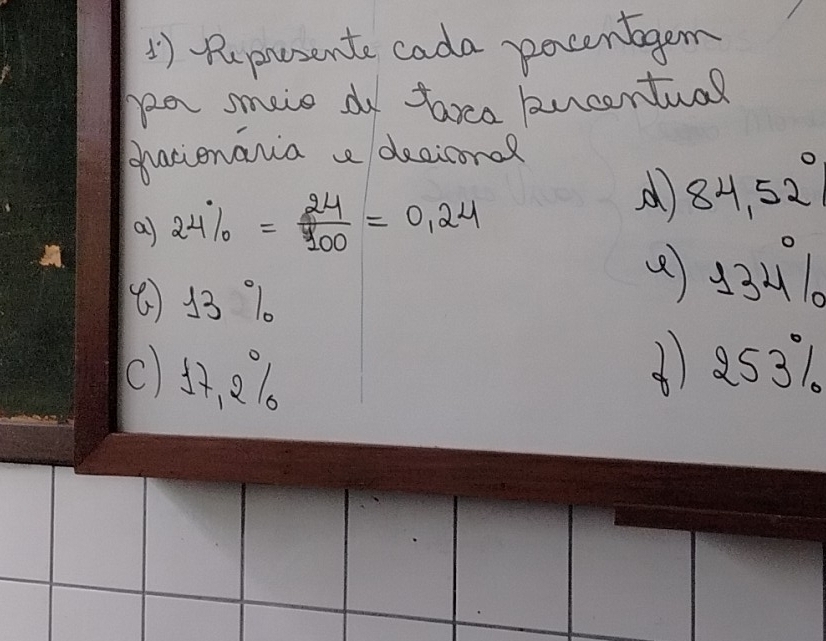 1º) Represente cada porcentagem
por meio de taxa percentual
fracionária e decimal
a) 24% = 24/100 = 0,24
b) 13 %
c) 17,2%
d) 84,52%
e) 134%
f) 253%